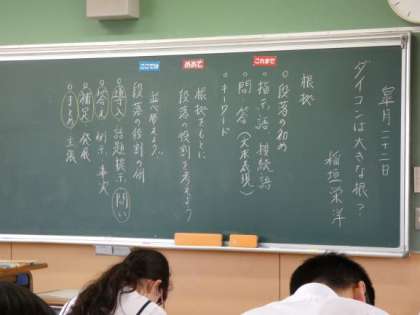 皐月二十二日
ダイコンは大きな根？
稲垣栄洋
これまで
根拠
○段落の初め
・指示語 接続語
・問 答（文末表現）
・キーワード
めあて
根拠をもとに
段落の役割を考えよう
並べ替えよう
段落の役割の例
○導入 話題提示 問い
○答え 例示 事実
○補足 発展
○まとめ 主張